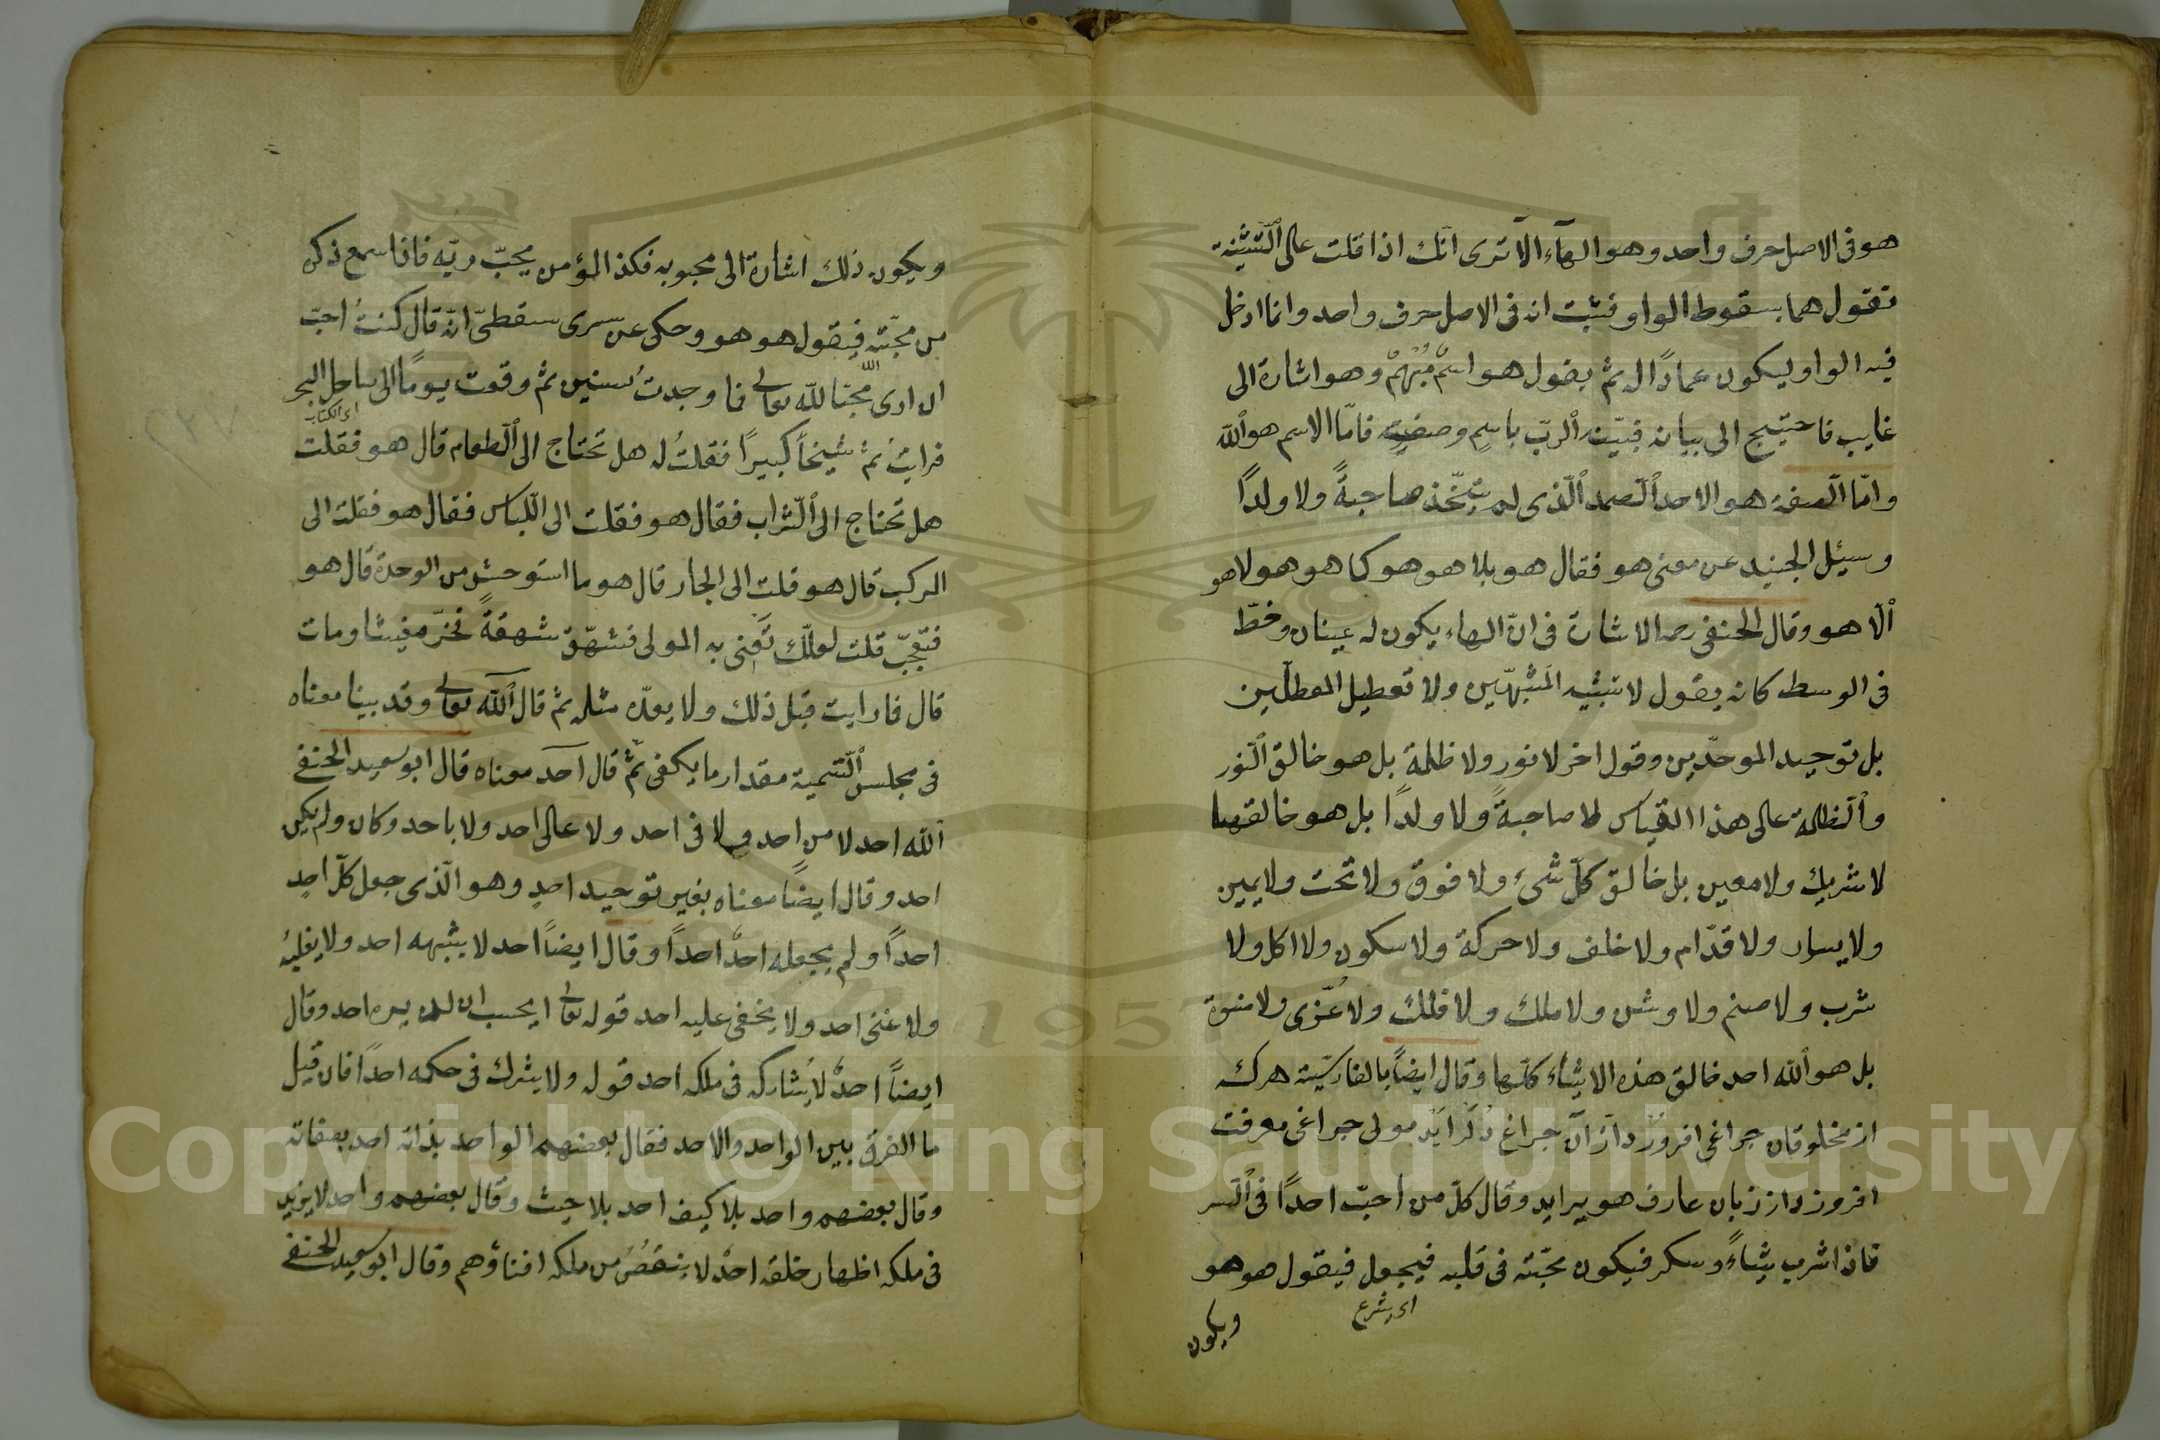 هو فى الاصل حرف واحد وهو الهآء الا ترى انّك اذا قلت على التّثنية
تقول هما بسقوط الواو فثبت انه فى الاصل حرف واحد وانما ادخل
فيه الواو ليكون عمادًا له ثم يقول هو اسم مُبْهمٌ وهو اشارة الى
غايب فاحتيج الى بيانه فبيّن الربّ باسم وصفة فامّا الاسم هو الله
وامّا الصفة هو الاحد الصمد الّذى لم يتّخذ صاحبةً ولا ولدًا
وسئل الجنيد عن معنى هو فقال هو بلا هو هو كما هو هو لا هو
الّا هو وقال الحنفى رحمه الاشارة فى انّ الهاء يكون له عينان وخطّ
فى الوسط كانه يقول لا تشبيه المشبّهين ولا تعطيل المعطّلين
بل توحيد الموحّدين وقول اخر لا نور ولا ظلمة بل هو خالق النّور
والظلمة على هذا القياس لا صاحبةً ولا ولدًا بل هو خالقهما
لا شريك ولا معين بل خالق كلّ شىء ولا فوق ولا تحت ولا يمين
ولا يسار ولا قدّام ولا خلف ولا حركة ولا سكون ولا اكل ولا
شرب ولا صنم ولا وثن ولا ملك ولا فلك ولا عُزّى ولا منوة
بل هو الله احد خالق هذه الاشياء كلّها وقال ايضًا بالفارسيّة هركه
از مخلوقان جراغى افروزد از آن جراغ دكر ايد مولى جراغى معرفت
افروزد از زبان عارف هو برايد وقال كلّ من احبّ احدًا فى السّر
فاذا شرب شيئًا وسكر فيكون محبّته فى قلبه فيجعل فيقول هو هو
اى يشرع
ويكون
ويكون ذلك اشارة الى محبوبه فكذا المؤمن يحبّ ربّه فاذا سمع ذكره
من محبّته فيقول هو هو وحكى عن سرى سقطىّ انّه قال كنتُ احبّ
ان ارى محبّا لله تعالى فما وجدت سنين ثم وقعت يومًا الى ساحل البحر
فرايت ثم شيخًا كبيرًا فقلتُ له هل تحتاج الى الطعام قال هو فقلت
هل تحتاج الى الشّراب فقال هو فقلت الى اللّباس فقال هو فقلت الى
المركب قال هو قلت الى الجار قال هو ما استوحش من الوحدة قال هو
فتعجّب قلت لعلّك تعنى به المولى فشهّق شهقةً فخرّ مغشيا ومات
قال فما رايت قبل ذلك ولا بعده مثله ثم قال الله تعالى وقد بينا معناه
فى مجلس التّسمية مقدار ما يكفى ثمّ قال احد معناه قال ابو سعيد الحنفى
الله احد لا من احد ولا فى احد ولا على احد ولا باحد وكان ولم يكن
احد وقال ايضًا معناه بغير توحيد احدٍ وهو الّذى جعل كلّ احدٍ
احدًا ولم يجعله احدٌ احدًا وقال ايضًا احد لا يشبهه احد ولا يغلبه
ولا عنى احد ولا يخفى عليه احد قوله تعالى ايحسب ان لم يره احد وقال
ايضًا احدٌ لا يُشاركه فى ملكه احد قوله ولا يشرك فى حكمه احدًا فان قيل
ما الفرق بين الواحد والاحد فقال بعضهم الواحد بذاته احد بصفاته
وقال بعضهم واحد بلا كيف احد بلا حيث وقال بعضهم واحد لا يزيد
فى ملكه اظهار خلقه احدٌ لا ينقصُ من ملكه افناؤهم وقال ابو سعيد الحنفى
Copyright © King Saud University
1957